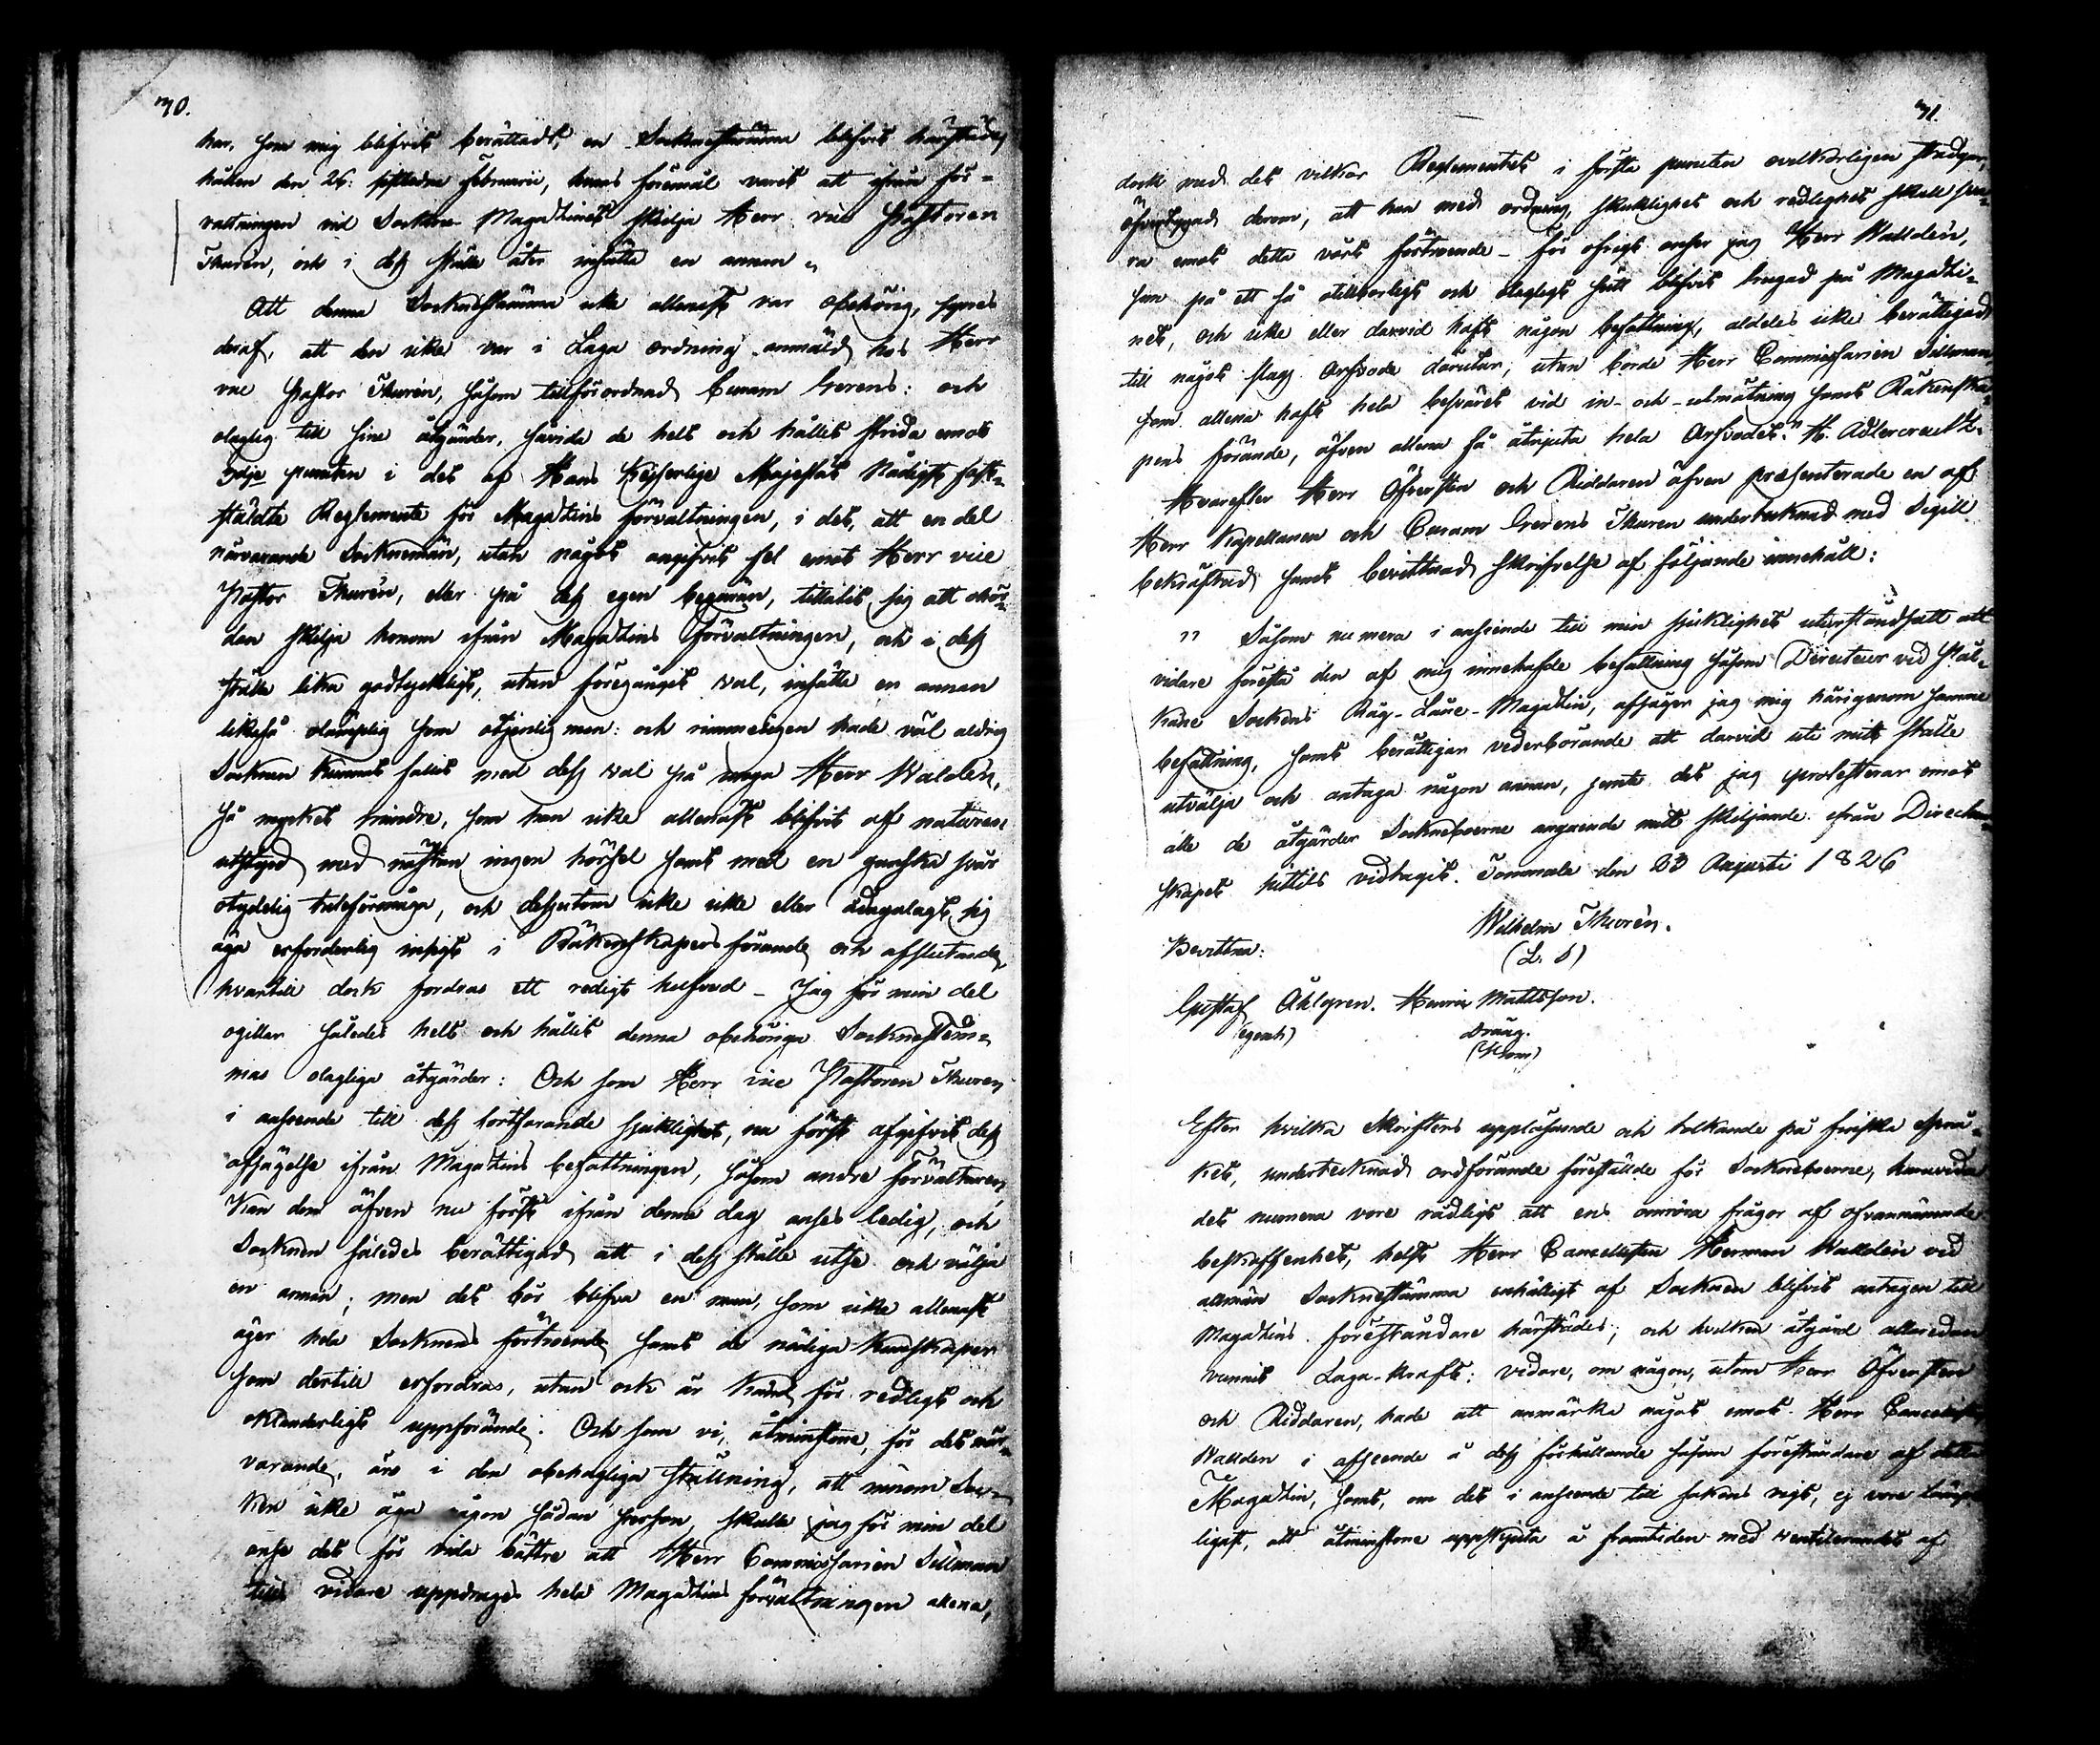 70.
har, som mig blifvit berättadt, en Socknestämma blifvit härstädes
hållen den 26: sistledne Februarii, hvars föremål varit att ifrån för-
valtningen vid Sockne Magazinet skilja Herr vice Pastoren
Thurén, och i dess ställe åter insätta en annan „
Att denna Socknestämma icke allenast var obehörig, synes
deraf, att den icke var i Laga ordning anmäld hos Herr
vice Pastor Thurén, såsom tillförordnad Curam Gerens: och
olaglig till sine åtgärder, såvida de helt och hållit strida emot
3dje puncten i det af Hans Kejserlige Majestät Nådigst fast-
stäldte Reglemente för Magazins förvaltningen, i det, att en del
närvarande Socknemän, utan något angifvit fel emot Herr vice
Pastor Thurén, eller på dess egen begäran, tillåtit sig att
den skilja honom ifrån Magazins förvaltningen, och i dess
ställe lika godtyckligt, utan föregånget val, insätta en annan
likaså olämplig som otjenlig man: och rimmeligen hade väl aldrig
Socknen kunnat fallit med dess val på unga Herr Walldén,
så mycket mindre, som han icke allenast blifvit af naturen
utstyrd med nästan ingen hörsel samt med en ganska svår
otydelig talförmåga, och dessutom icke eller ådagalagt sig
äga erforderlig insigt i Räkenskapers förande och afslutande,
hvartill dock fordras ett redigt hufvud – Jag för min del
ogillar således helt och hållit denna obehöriga Socknestäm-
mas olagliga åtgärder: Och som Herr vice Pastoren Thuren
i anseende till dess fortfarande sjuklighet, nu först afgifvit dess
afsägelse ifrån Magazins befattningen, såsom andre Förvaltaren,
kan den äfven nu först ifrån denna dag anses ledig, och
Socknen således berättigad att i dess ställe utse och välja
en annan; men det bör blifva en man, som icke allenast
äger hela Socknens förtroende samt de nödiga kunskaper
som dertill erfordras, utan ock är känd för redligt och
oklanderligt uppförande. Och som vi, åtminstone, för det när-
varande, äro i den obehagliga ställning, att innom Soc-
ken icke äga någon sådan person, skulle jag för min del
anse det för vida bättre att Herr Commissarien Sillman
tills vidare uppdrages hela Magazins förvaltningen allena,
71.
dock med det vilkor Reglementet i första puncten ovilkorligen stadgar,
öfvertygad derom, att han med ordning, skicklighet och redlighet skall sva-
ra emot detta vårt förtroende – för öfrigt anser jag Herr Walldén,
som på ett så otillbörligt och olagligt sätt blifvit trugad på Magazi-
net, och icke eller därvid haft någon befattning, aldeles icke berättigad
till något slags Arfvode därutur, utan borde Herr Commissarien Sillman
som allena haft hela besväret vid in- och utmätning samt Räkenska-
pens förande, äfven allena få åtnjuta hela Arfvodet." H. Adlercreutz.
Hvarefter Herr Öfversten och Riddaren äfven præsenterade en af
Herr Kapellanen och Curam Gerens Thuren undertecknad med Sigill
bekräftad samt bevittnad skrifvelse af följande innehåll:
" Såsom nu mera i anseende till min sjuklighet uturståndsatt att
vidare förestå den af mig innehafde befattning såsom Directeur vid Stor-
Sockens Råg-Låne-Magazin, afsäger jag mig härigenom samma
befattning, samt berättigar vederbörande att därvid uti mitt ställe
utvälja och antaga någon annan, jemte det jag protesterar emot
alla de åtgärder Socknebоerne angående mitt skiljande ifrån Direcktör-
skapet hittils vidtagit. Tommola den 23 Augusti 1826
Wilhelm Thurén.
Bevittna:
(L. S)
Gustaf Åhlgren. Henric Mattsson.
(egenh)
Dräng.
Efter hvilka Skrifters uppläsande och tolkande på finska språ-
ket, undertecknad ordförande föreställde för Sockneboerne, huruvida
det numera vore rådligt att ens omröra frågor af ofvannämnde
beskaffenhet, helst Herr Cancellisten Herman Walldén vid
allmän Socknestämma enhälligt af Socknen blifvit antagen till
Magazins föreståndare härstädes; och hvilken åtgärd allaredan
vunnit Laga-kraft: vidare, om någon, utom Herr Öfversten
och Riddaren, hade att anmärka något emot Herr Cancellisten
Wallden i afseende å dess förhållande såsom föreståndare af detta
Magazin, samt, om det i anseende till sakens vigt, ej vore lämp-
ligast, att åtminstone uppskjuta å framtiden med ventilerandet af